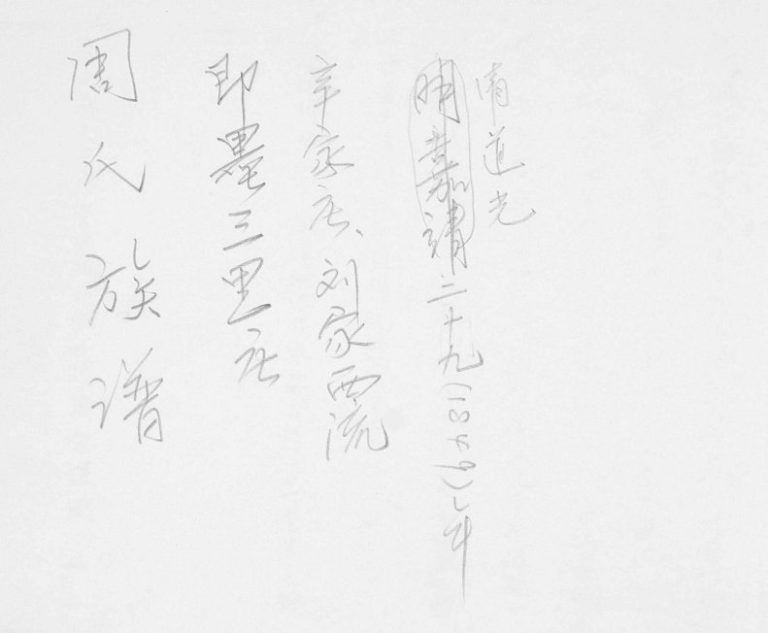 清道光
明嘉靖二十九(1849)年
辛家庄、刘家西流
即墨三里庄
周氏族谱